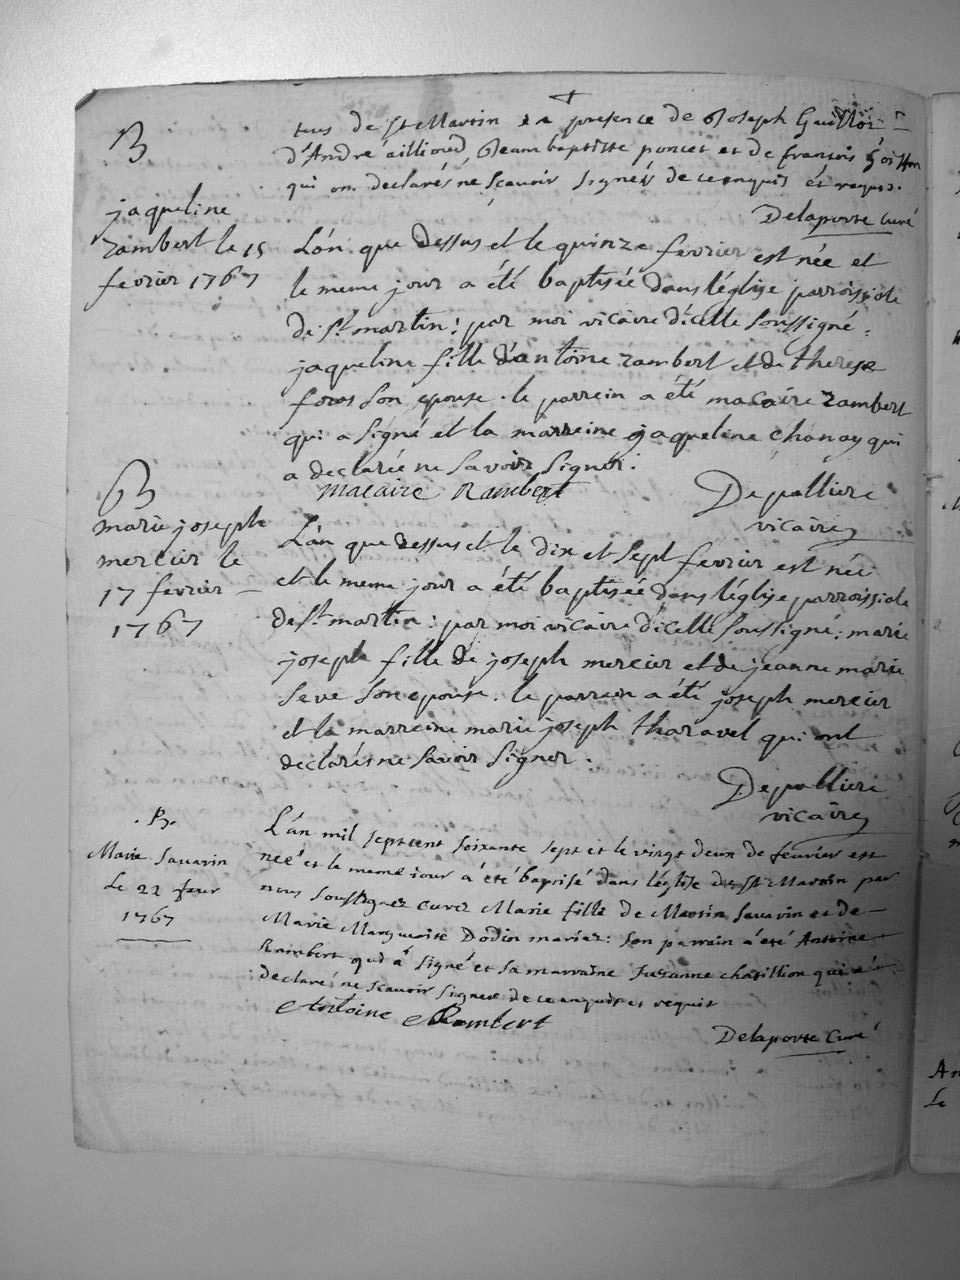 B
tus de St Martin en presence de Joseph
d'André aillioud, Jean baptiste poncet et de francois
qui on declarés ne scavoir signér de ce enquis et requis.
Delaporte curé
jaqueline
rambert le 15
fevrier 1767
L'an que dessus et le quinze fevrier est née et
le meme jour a été baptisée dans l'église parroissiale
de st martin: par moi vicaire d'icelle soussigné:
jaqueline fille d'antoine rambert et de therese
fores son epouse. le parrein a été macaire rambert
qui a signé et la marreine jaqueline chanay qui
a declarée ne savoir signer.
macaire Rambert
Depalliere
vicaire
B
marie joseph
mercier le
17 fevrier
1767
L'an que dessus et le dix et sept fevrier est née
et le meme jour a été baptisée dans l'église parroissiale
de st martin: par moi vicaire d'icelle soussigné: marie
joseph fille de joseph mercier et de jeanne marie
seve son epouse. le parrein a été joseph mercier
et la marreine marie joseph tharavel qui ont
declarés ne savoir signer.
Depalliere
vicaire
B.
Marie Savarin
Le 22 fevr
1767
L'an mil septcent soixante sept et le vingt deux de fevrier est
neé et le meme iour á eté baptisé dans l'église de St Martin par
nous soussignez curez Marie fille de Martin Savarin et de
Marie Marguerite Dodin mariez: son parrain á eté Antoine
Rambert qui á signé et sa marraine Suzanne chatillion qui á
declaré ne scavoir signer de ce enquis et requis
Antoine Rambert
Delaporte Curé
An
Le